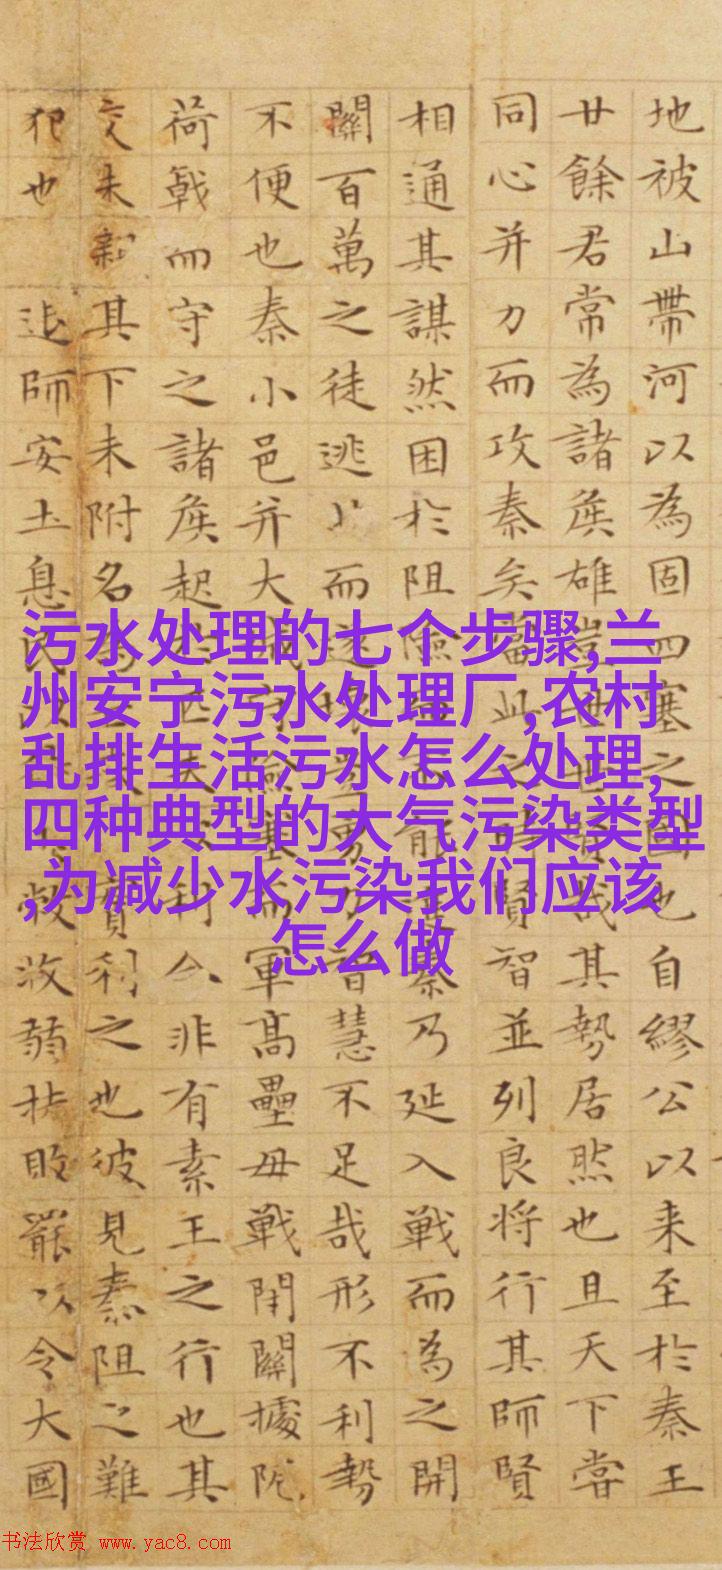 地被山帶河以為固四塞之國也自繆公以来至於秦王
廿餘君常為諸侯雄豈世世賢哉其勢居然也且天下甞
同心并力而攻秦矣當此之時賢智並列良将行其師賢
相通其謀然困於阻險不能秦乃延入戦而為之開
關百萬之徒逃而遂壞豈勇力智慧不足哉形不利勢
不便也秦小邑并大城守險塞而軍高壘毋戦閉關據阨
荷戟而守之諸侯起於匹夫以利合非有素王之行也其
交未親其下未附名為實利之也彼見秦阻之難
犯也退師安土息民以收弱扶敗罷以令大國
污水处理的七个步骤,兰
州安宁污水处理厂,农村
乱排生活污水怎么处理,
四种典型的大气污染类型
,为减少水污染我们应该
怎么做
书法欣赏 www.yac8.com